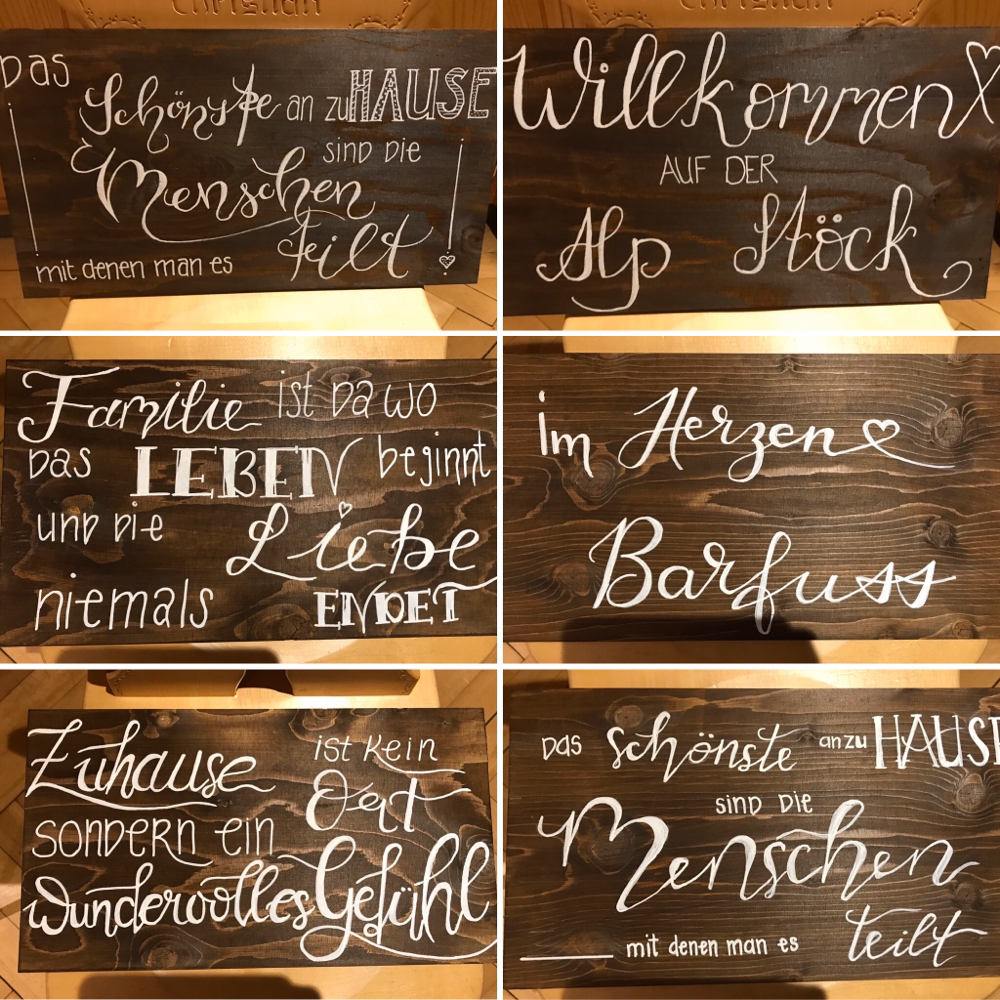 Christian
Das
Schönste an zu HAUSE
sind die
Menschen
mit denen man es teilt
Willkommen
AUF DER
Alp Stöck
Familie ist da wo
das LEBEN beginnt
und die Liebe
niemals ENDET
im Herzen
Barfuss
Zuhause ist kein
Ort
sondern ein
wundervolles Gefühl
Das schönste an zu HAUSE
sind die
Menschen
mit denen man es teilt